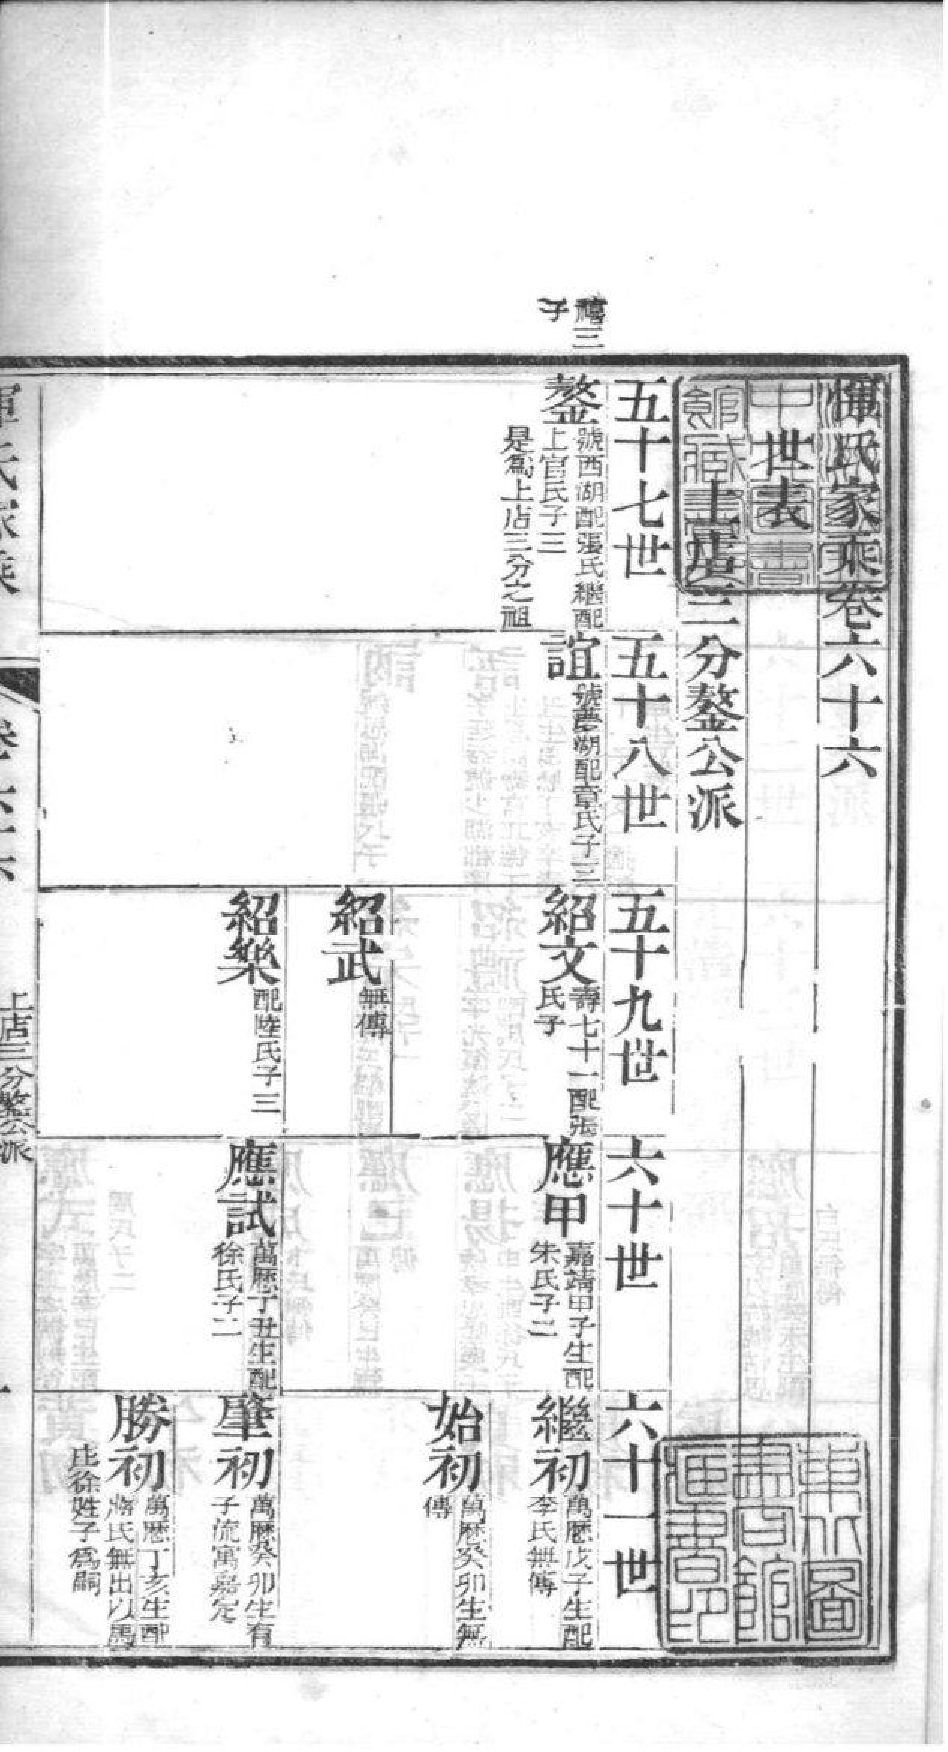 惲氏家乘卷六十六
世表
上店三分鏊公派
五十七世
禧三
子
鏊
號西湖配張氏繼配
上官氏子三
是爲上店三分之祖
五十八世
誼
號慶湖配章氏子三
五十九世
紹文
壽七十一配張
氏子
紹武
無傳
紹樂
配陸氏子三
六十世
應甲
嘉靖甲子生配
朱氏子二
應試
萬歷丁丑生配
徐氏子二
六十一世
繼初
萬歷戊子生配
李氏無傳
始初
萬歷癸卯生無
傳
肇初
萬歷癸卯生有
子流寓嘉定
勝初
萬歷丁亥生配
蔣氏無出以馬
庄徐姓子爲嗣
惲氏家乘
卷六十六
上店三分鏊公派
一